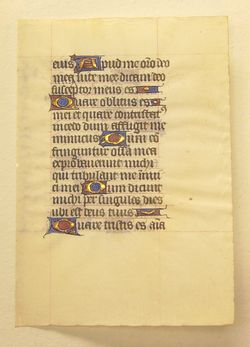 eius Apud me oro deo
meę uite mee dicam deo
susceptor meus es
Quare oblitus es
mei et quare contristat
incedo dum affligit me
inimicus Dum con
fringuntur ossa mea
exprobraverunt michi
qui tribulant me inim
ci mei Dum dicunt
michi per singulos dies
ubi est deus tuus
Quare tristis es aīa